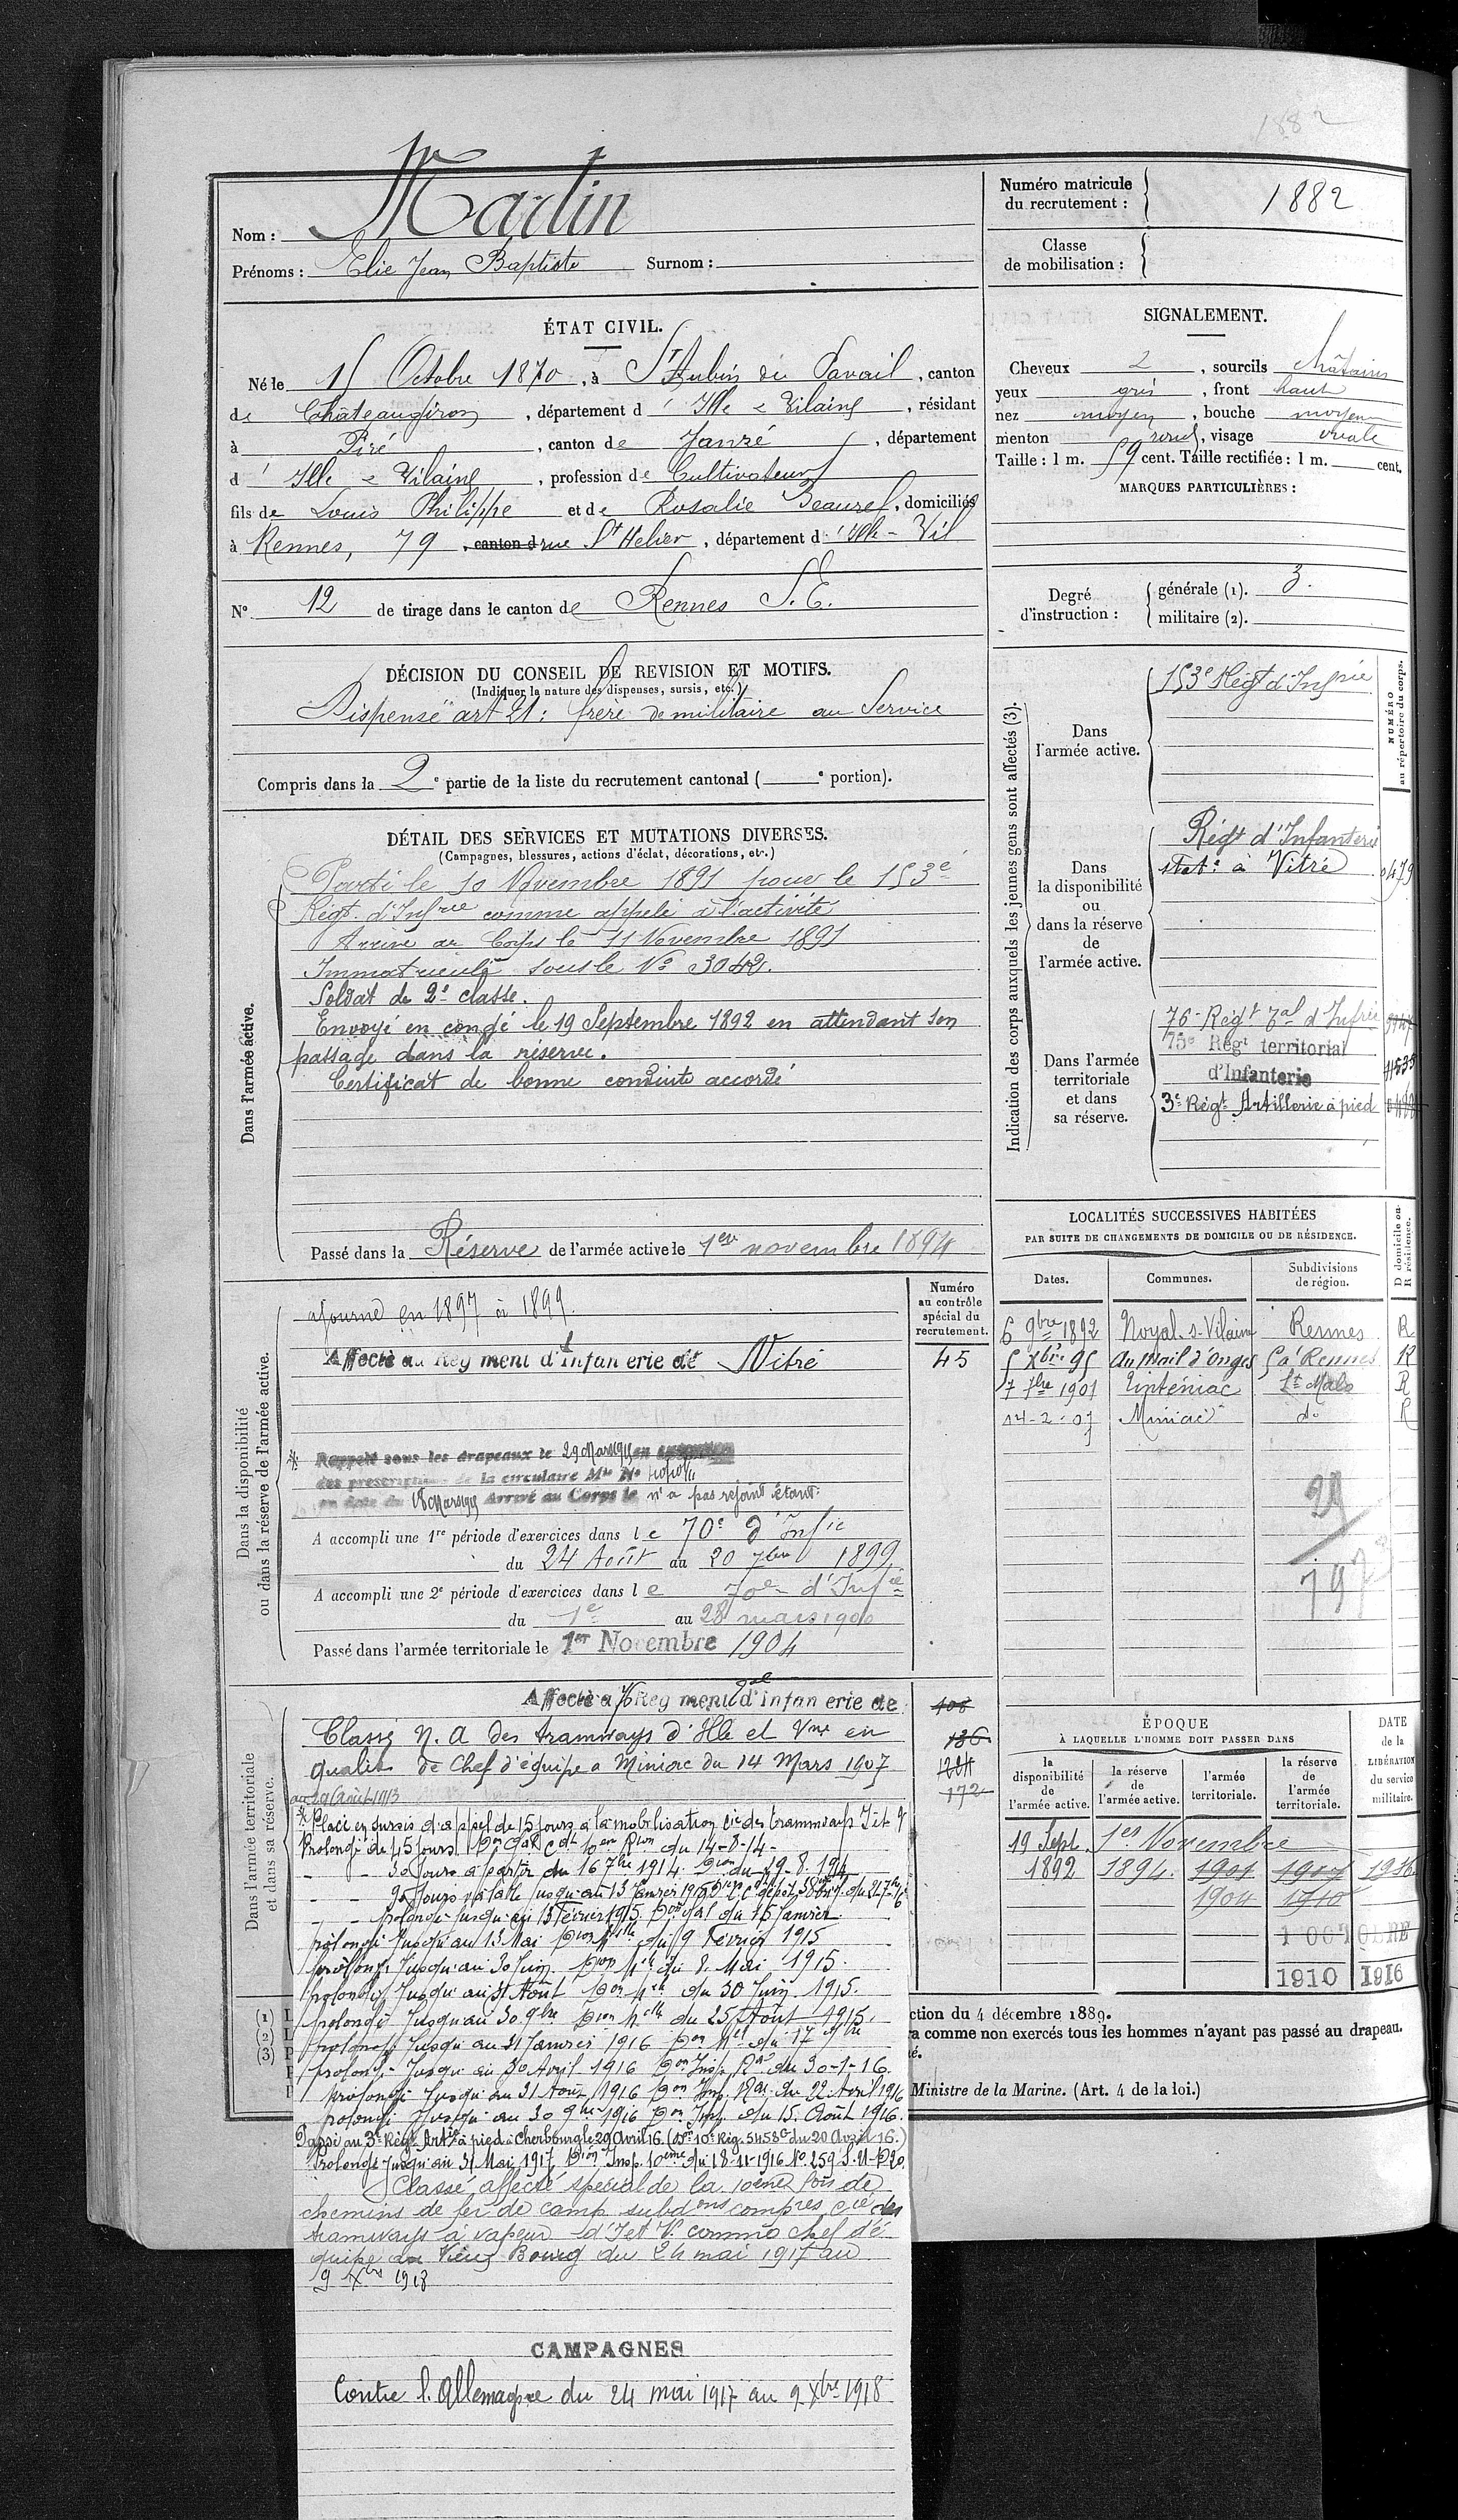 1882
Nom : Martin
Prénoms : Elie Jean Baptiste Surnom :
Numéro matricule du recrutement : 1882
Classe de mobilisation :
ÉTAT CIVIL.
Né le 15 Octobre 1870, à St Aubin du Pavail, canton
de Châteaugiron, département d'Ille & Vilaine, résidant
à Piré, canton de Janzé, département
d'Ille & Vilaine, profession de Cultivateur
fils de Louis Philippe et de Rosalie Beaurel, domiciliés
à Rennes, 79, canton d rue St Helier, département d'Ille - Vil
N° 12 de tirage dans le canton de Rennes S. E.
SIGNALEMENT.
Cheveux 2, sourcils châtains
yeux gris, front haut
nez moyen, bouche moyenne
menton rond, visage ovale
Taille : 1 m. 59 cent. Taille rectifiée : 1 m. cent.
MARQUES PARTICULIÈRES :
Degré d'instruction : générale (1). 3.
militaire (2).
DÉCISION DU CONSEIL DE REVISION ET MOTIFS.
(Indiquer la nature des dispenses, sursis, etc.)
Dispensé art 21 : frère de militaire au Service
Compris dans la 2e partie de la liste du recrutement cantonal ( e portion).
DÉTAIL DES SERVICES ET MUTATIONS DIVERSES.
(Campagnes, blessures, actions d'éclat, décorations, etc.)
Dans l'armée active.
Parti le 10 Novembre 1891 pour le 153e
Régt. d'Infrie comme appelé à l'activité
Arrivé au Corps le 11 Novembre 1891
Immatriculé sous le N° 3042.
Soldat de 2e classe.
Envoyé en congé le 19 Septembre 1892 en attendant son
passage dans la réserve.
Certificat de bonne conduite accordé
Passé dans la Réserve de l'armée active le 1er novembre 1894
Indication des corps auxquels les jeunes gens sont affectés (3).
NUMÉRO au répertoire du corps.
Dans l'armée active.
153e Régt d'Infrie
Dans la disponibilité ou dans la réserve de l'armée active.
Régt d'Infanterie
statre à Vitré 0479
Dans l'armée territoriale et dans sa réserve.
76e Régt Tal d'Infrie
75e Régt territorial
d'Infanterie
3e Régt Artillerie à pied
LOCALITÉS SUCCESSIVES HABITÉES
PAR SUITE DE CHANGEMENTS DE DOMICILE OU DE RÉSIDENCE.
Dates. Communes. Subdivisions de région. D domicile ou R résidence.
6 9bre 1892 Noyal-s-Vilaine Rennes R
5 Xbre 95 Au Mail d'Onges Ça Rennes R
7 7bre 1901 Tinténiac St Malo R
14-2-07 Miniac do R
29
797
Dans la disponibilité ou dans la réserve de l'armée active.
Numéro au contrôle spécial du recrutement.
ajourné en 1897 à 1899.
Affecté au Régiment d'Infanterie de Vitré 45
Rappelé sous les drapeaux le 29 Mars
des prescriptions de la circulaire Mlle N°
en date du 18 Mars Arrivé au Corps le n'a pas rejoint étant :
A accompli une 1re période d'exercices dans le 70e d'Infie
du 24 Août au 20 7bre 1899
A accompli une 2e période d'exercices dans le 70e d'Infie
du 1er au 28 mars 1900
Passé dans l'armée territoriale le 1er Novembre 1904
Dans l'armée territoriale et dans sa réserve.
Affecté au 76 Régiment Tal d'Infanterie de 108
Classé N. A des tramways d'Ille et Vne en 136
qualité de Chef d'équipe à Miniac du 14 Mars 1907
au 29 Août 1913 172
Placé en sursis d'appel de 15 jours à la mobilisation Cie des tramways I et V
Prolongé de 45 jours Don Gal Cdt 10eme Rion du 14-8-14-
- - 30 jours à partir du 16 7bre 1914 Don du 29.8.1914
- - 90 jours valable jusqu'au 13 Janvier 1915
- - prolongé jusqu'au 13 Février 1915 Don Gal du 15 Janvier
prolongé jusqu'au 13 Mai Don Mlle du 9 Février 1915
prolongé jusqu'au 30 Juin Don Mlle du 8 Mai 1915.
prolongé jusqu'au 31 Août Don Mlle du 30 Juin 1915.
prolongé jusqu'au 30 9bre Don Mlle du 25 Août 1915.
prolongé jusqu'au 31 Janvier 1916 Don Mlle du 17 9bre
prolongé jusqu'au 30 Avril 1916 Don Insp. Ral du 30-1-16.
prolongé jusqu'au 31 Août 1916 Don Insp. Ral du 22 Avril 1916
prolongé jusqu'au 30 9bre 1916 Don Insp. du 15 Août 1916.
Passé au 3e Régt Artie à pied à Cherbourg le 29 Avril 16. (Don 10e Rég. 5458 du 20 Avril 16.)
Prolongé jusqu'au 31 Mai 1917 Don Insp. 10eme du 18-11-1916 No 259
Classé affecté spécial de la 10eme son de
chemins de fer de camp. subdons compres Cie des
tramways à vapeur d'I et V. comme chef d'é
quipe au Vieux Bourg du 24 mai 1917 au
9 Xbre 1918
CAMPAGNES
Contre l'Allemagne du 24 mai 1917 au 9 Xbre 1918
ÉPOQUE
À LAQUELLE L'HOMME DOIT PASSER DANS
la disponibilité de l'armée active. la réserve de l'armée active. l'armée territoriale. la réserve de l'armée territoriale. DATE de la LIBÉRATION du service militaire.
19 Sept. 1er Novembre
1892 1894. 1901 1907 1916
1904 1910
1 OCTOBRE
1910 1916
(1)
(2)
(3)
ction du 4 décembre 1889.
ra comme non exercés tous les hommes n'ayant pas passé au drapeau.
é.
Ministre de la Marine. (Art. 4 de la loi.)